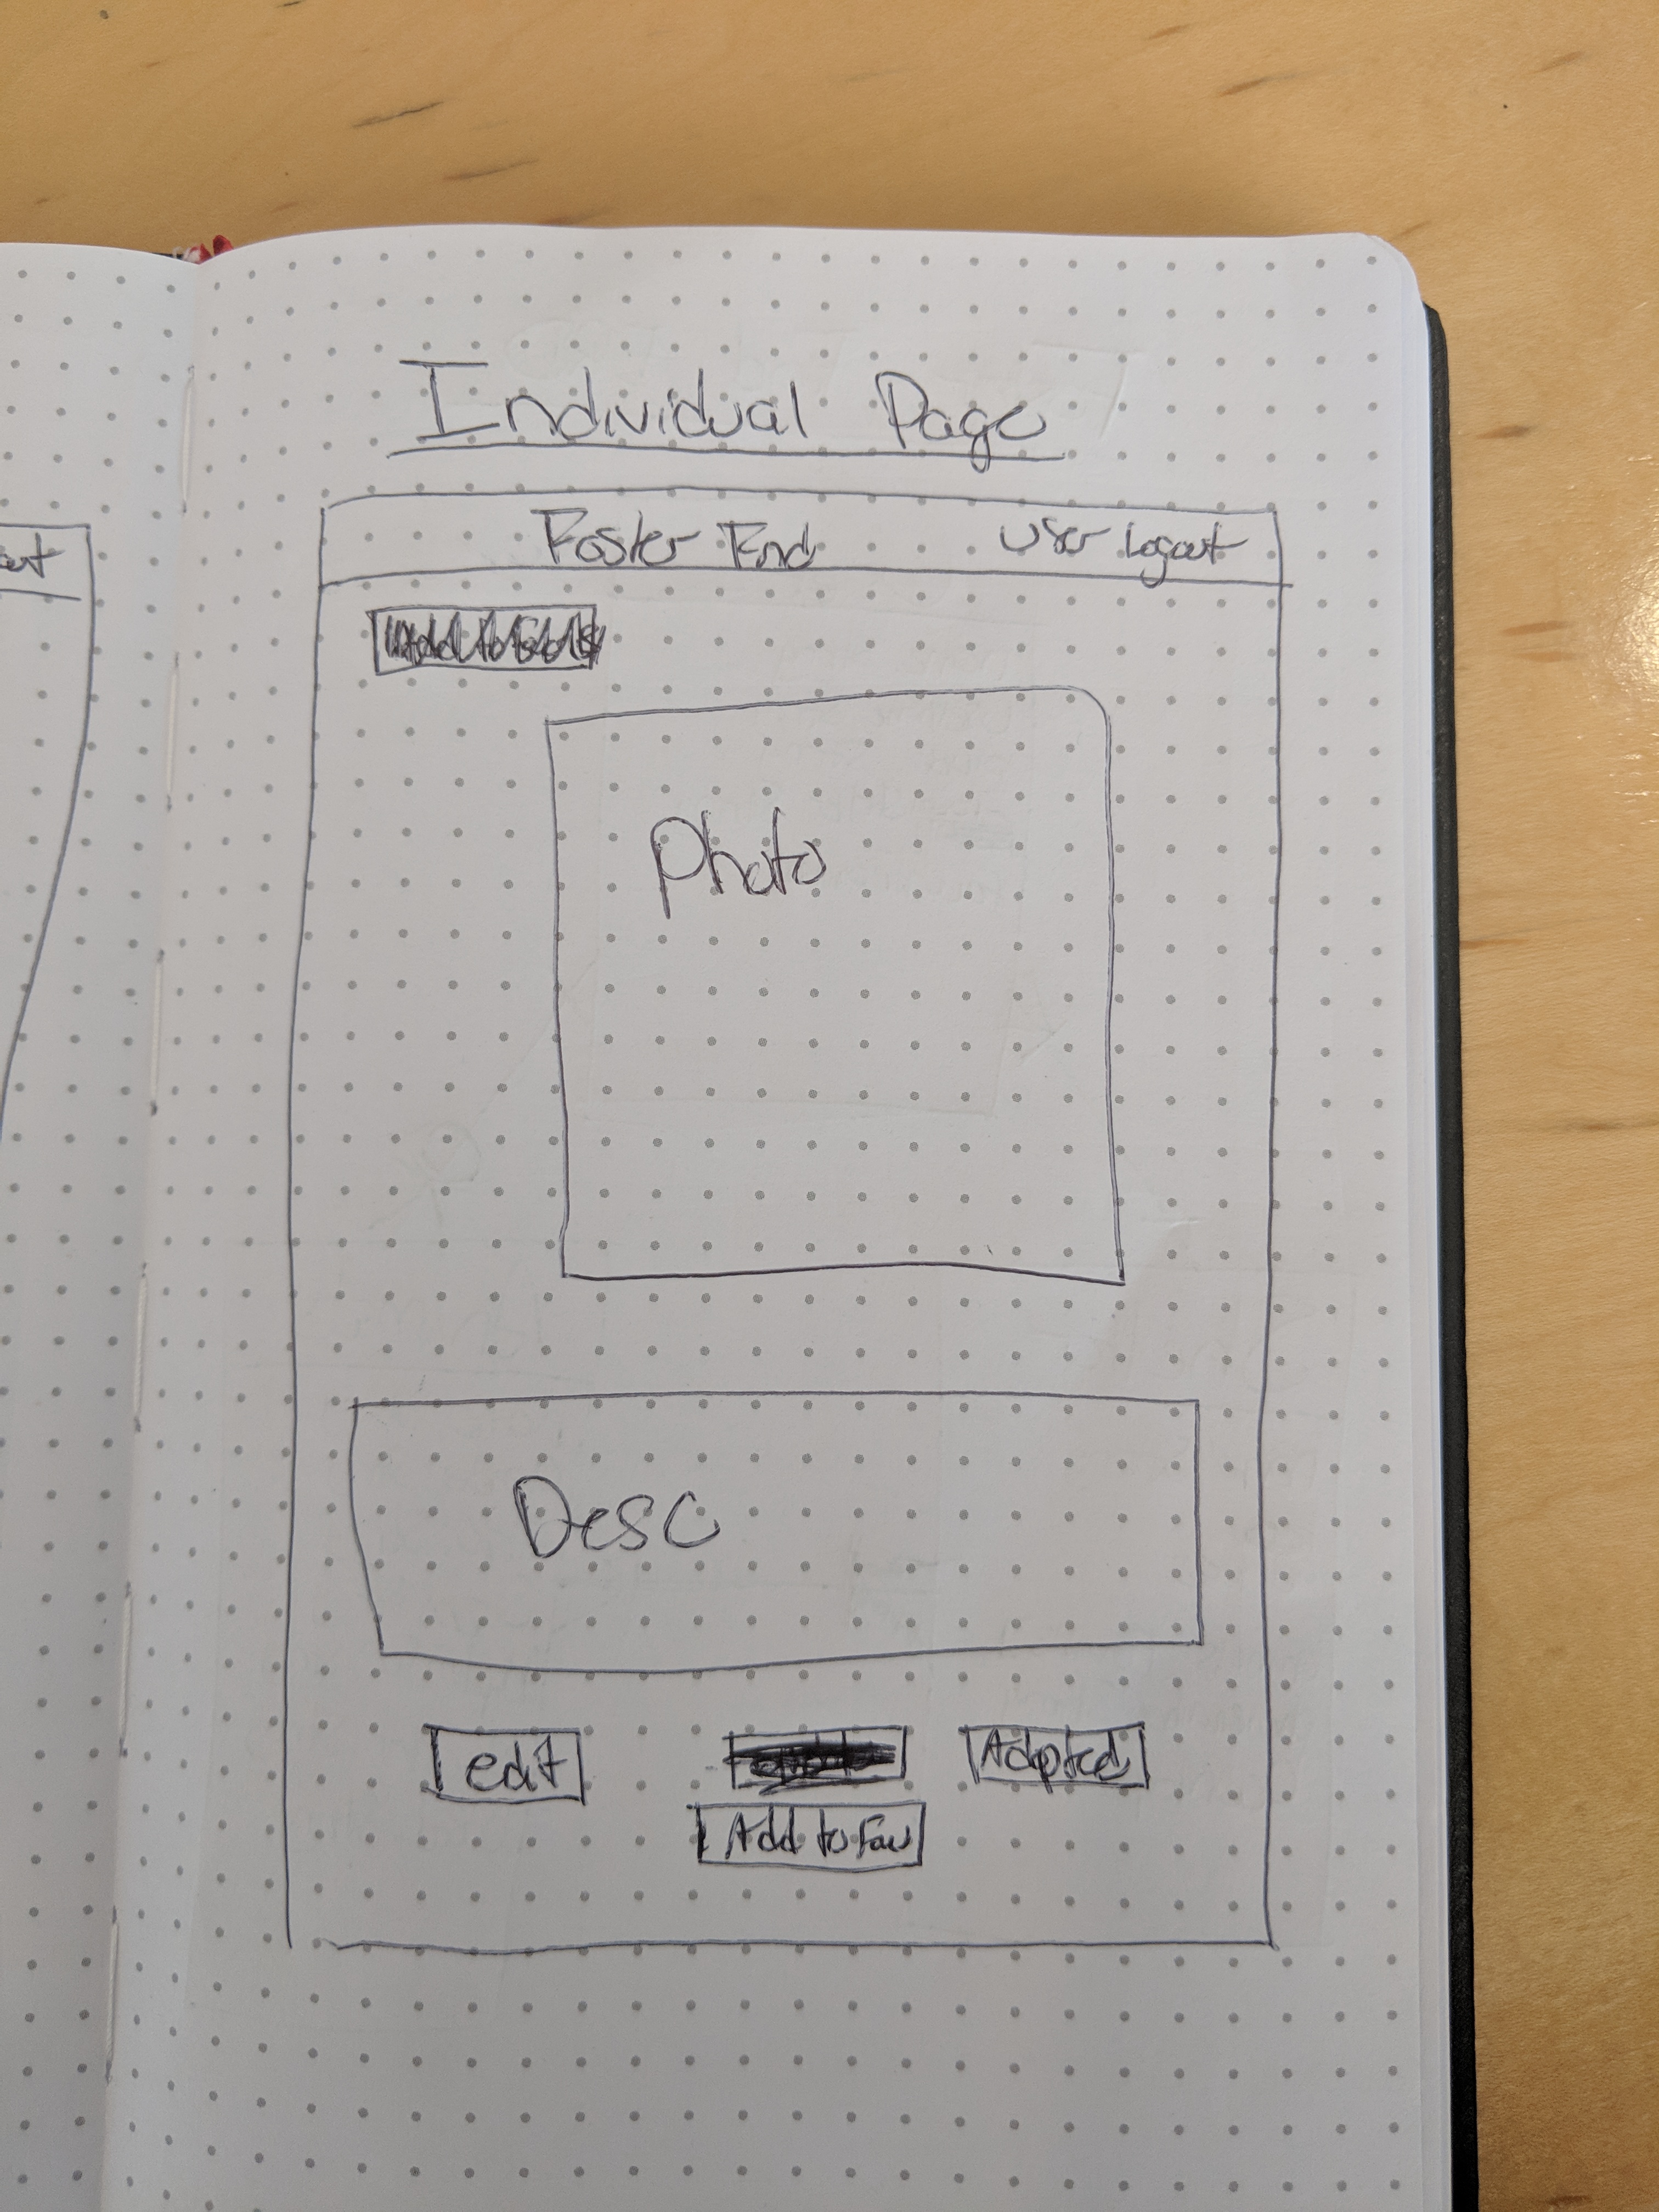 Individual Page
Foster Find User Logout
Photo
Desc
edit Adopted
Add to Fav